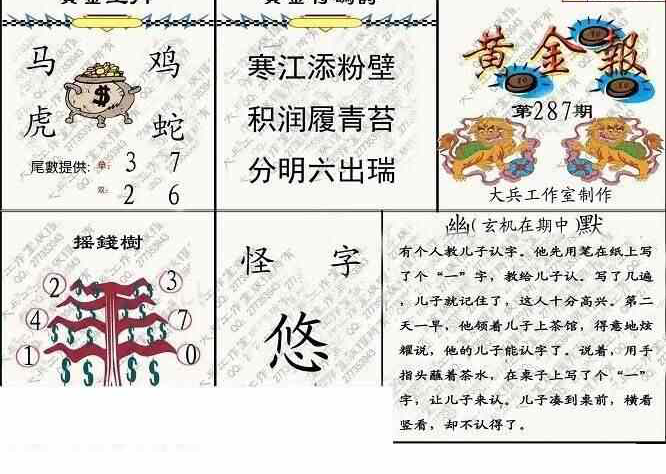 马 鸡
虎 蛇
尾數提供: 单: 3 7
双: 2 6
寒江添粉壁
积润履青苔
分明六出瑞
黄金報
第287期
大兵工作室制作
摇錢樹
2 3
4 7
1 0
怪 字
悠
幽(玄机在期中)默
有个人教儿子认字。他先用笔在纸上写
了个“一”字，教给儿子认。写了几遍
，儿子就记住了，这人十分高兴。第二
天一早，他领着儿子上茶馆，得意地炫
耀说，他的儿子能认字了。说着，用手
指头蘸着茶水，在桌子上写了个“一”
字，让儿子来认。儿子凑到桌前，横看
竖看，却不认得了。